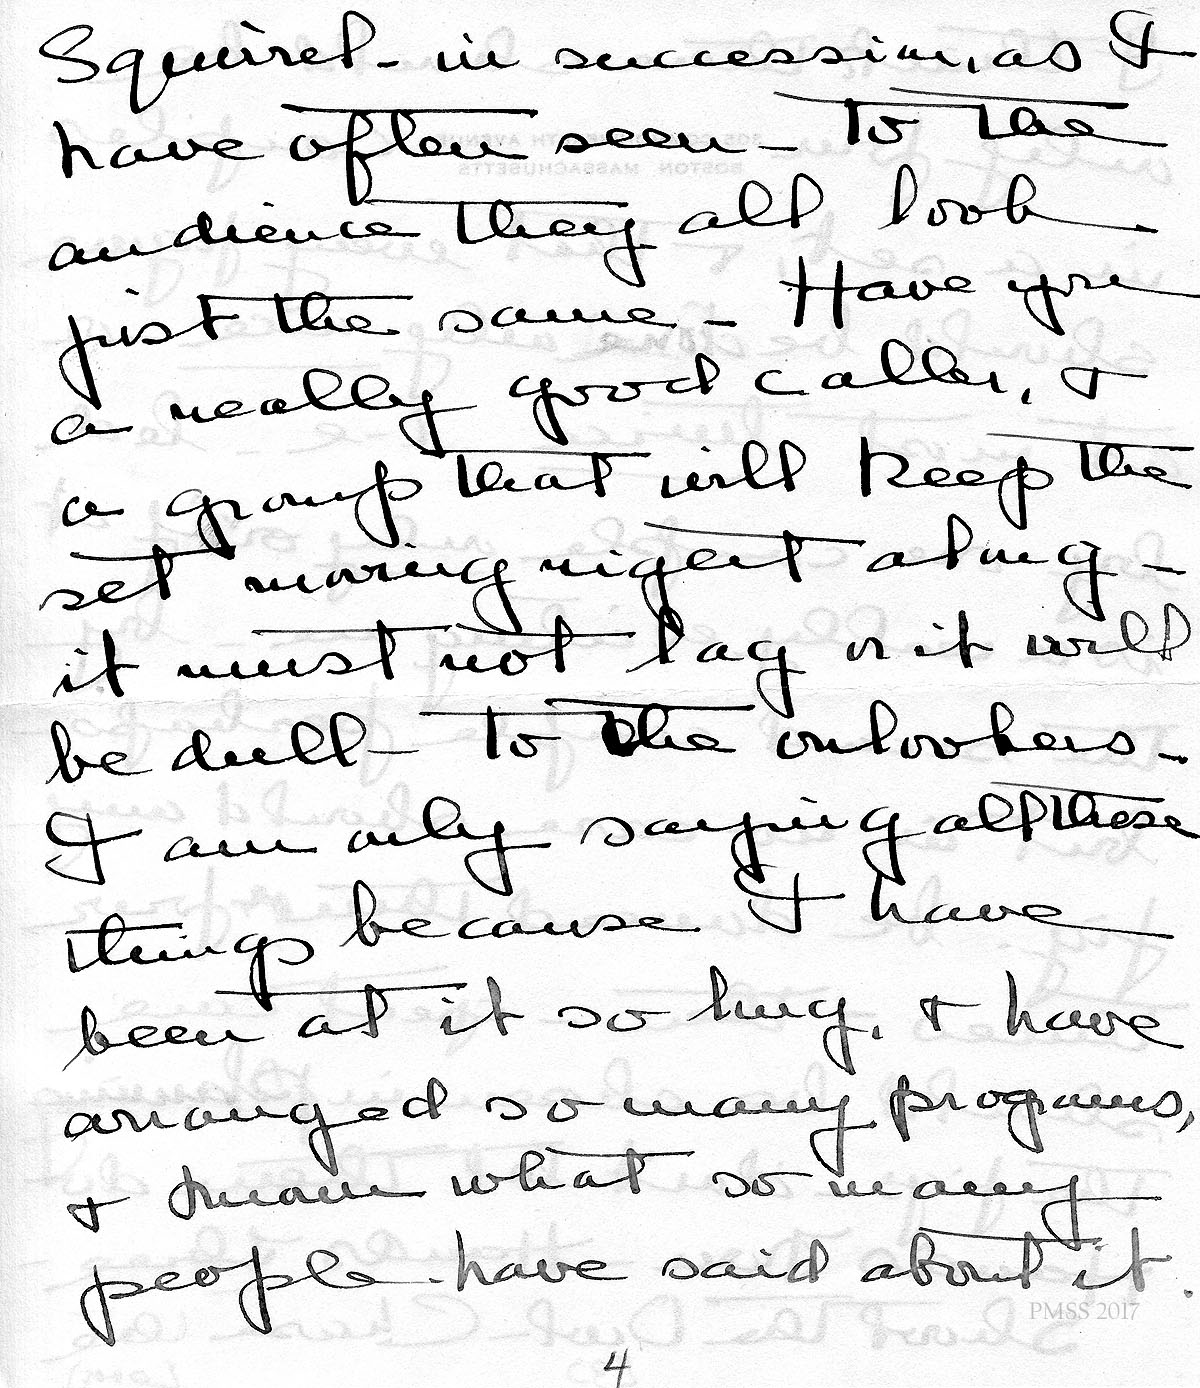 Squirrel - in succession, as I
have often seen - to the
audience they all look
just the same - Have you
a really good caller, &
a group that will keep the
set moving right along -
it must not lag or it will
be dull - to the onlookers -
I am only saying all these
things because I have
been at it so long, & have
arranged so many programs,
& know what so many
people have said about it.
PMSS 2017
4